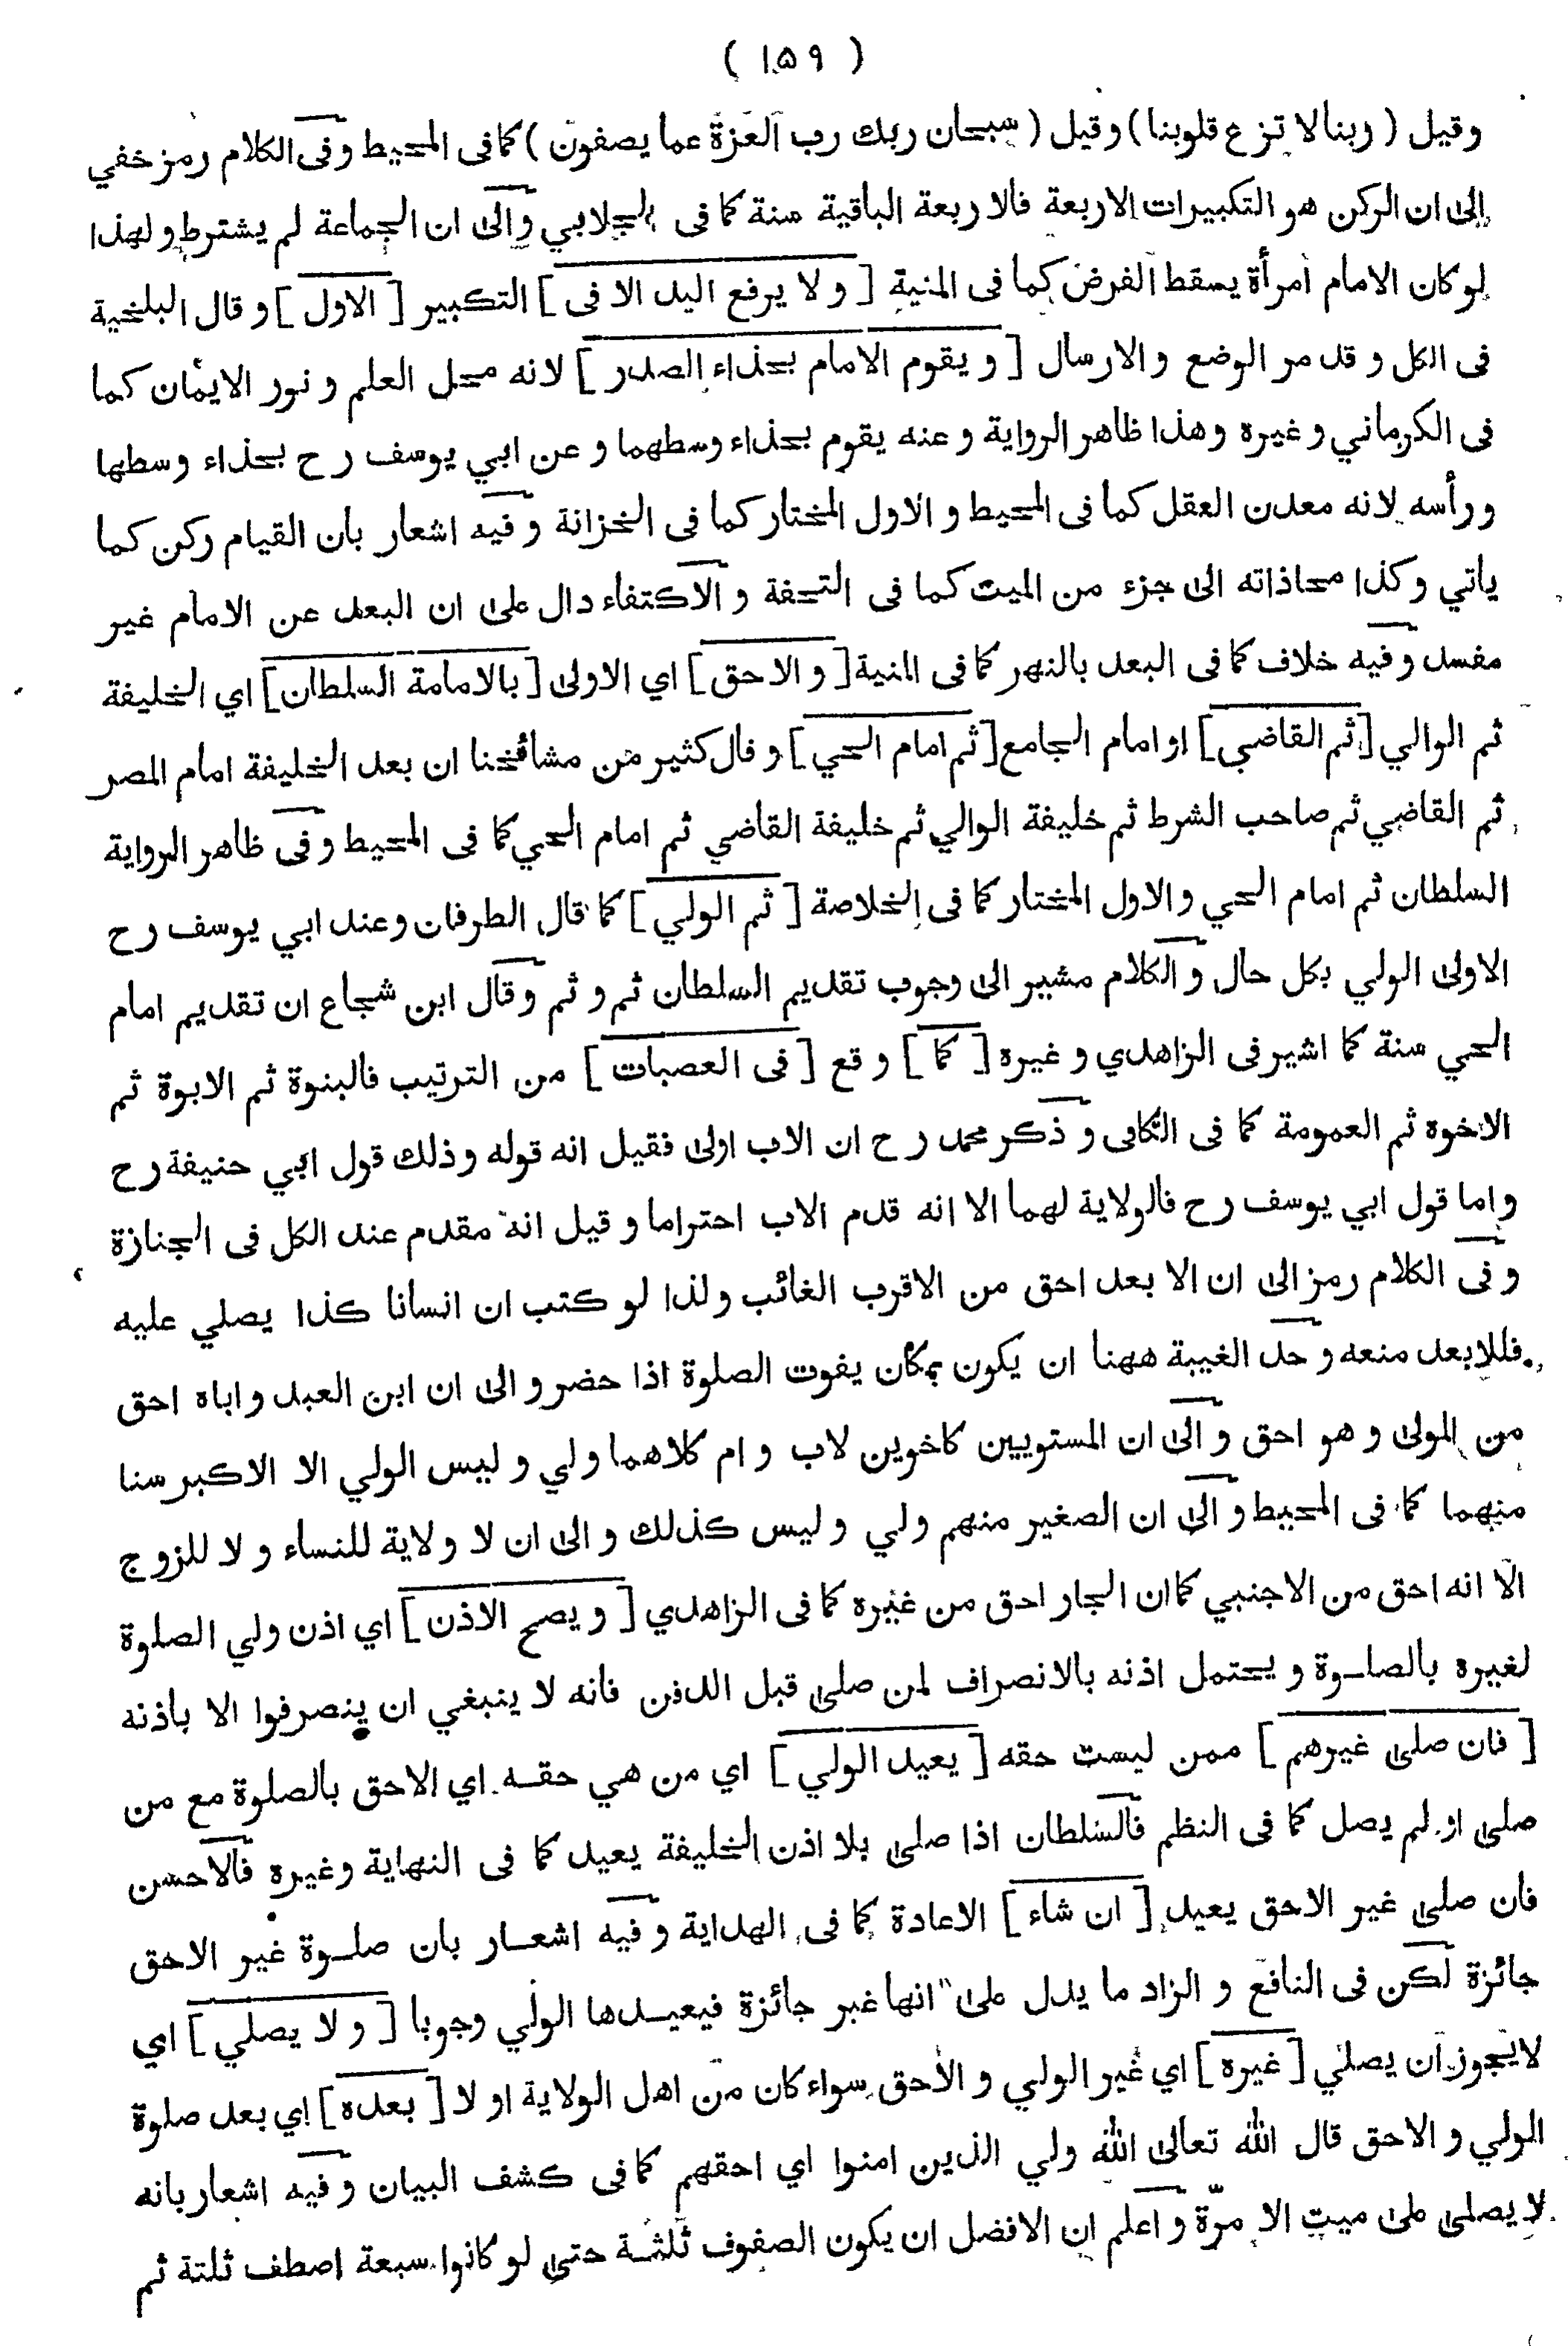 ( ١٥٩ )
وقيل ( ربنا لا تزغ قلوبنا ) وقيل ( سبحان ربك رب العزة عما يصفون ) كما فى المحيط وفى الكلام رمز خفي
الى ان الركن هو التكبيرات الاربعة فالاربعة الباقية سنة كما فى الجلابي والى ان الجماعة لم يشترط ولهذا
لو كان الامام امرأة يسقط الفرض كما فى المنية [ و لا يرفع اليد الا فى ] التكبير [ الاول ] و قال البلخية
فى الكل و قد مر الوضع و الارسال [ و يقوم الامام بحذاء الصدر ] لانه محل العلم و نور الايمان كما
فى الكرماني و غيره وهذا ظاهر الرواية و عنه يقوم بحذاء وسطهما و عن ابي يوسف رح بحذاء وسطها
ورأسه لانه معدن العقل كما فى المحيط و الاول المختار كما فى الخزانة و فيه اشعار بان القيام ركن كما
ياتي و كذا محاذاته الى جزء من الميت كما فى التحفة و الاكتفاء دال على ان البعد عن الامام غير
مفسد و فيه خلاف كما فى البعد بالنهر كما فى المنية [ و الاحق ] اي الاولى [ بالامامة السلطان ] اي الخليفة
ثم الوالي [ ثم القاضي ] او امام الجامع [ ثم امام الحي ] و قال كثير من مشائخنا ان بعد الخليفة امام المصر
ثم القاضي ثم صاحب الشرط ثم خليفة الوالي ثم خليفة القاضي ثم امام الحي كما فى المحيط و فى ظاهر الرواية
السلطان ثم امام الحي و الاول المختار كما فى الخلاصة [ ثم الولي ] كما قال الطرفان وعند ابي يوسف رح
الاولى الولي بكل حال و الكلام مشير الى وجوب تقديم السلطان ثم و ثم و قال ابن شجاع ان تقديم امام
الحي سنة كما اشير فى الزاهدي و غيره [ كما ] و قع [ فى العصبات ] من الترتيب فالبنوة ثم الابوة ثم
الاخوه ثم العمومة كما فى الكافى و ذكر محمد رح ان الاب اولى فقيل انه قوله و ذلك قول ابي حنيفة رح
واما قول ابي يوسف رح فالولاية لهما الا انه قدم الاب احتراما و قيل انه مقدم عند الكل فى الجنازة
و فى الكلام رمز الى ان الا بعد احق من الاقرب الغائب ولذا لو كتب ان انسانا كذا يصلي عليه
فللابعد منعه و حد الغيبة ههنا ان يكون بمكان يفوت الصلوة اذا حضر و الى ان ابن العبد و اباه احق
من المولى و هو احق و الى ان المستويين كاخوين لاب و ام كلاهما ولي و ليس الولي الا الاكبر سنا
منهما كما فى المحيط و الى ان الصغير منهم ولي و ليس كذلك و الى ان لا ولاية للنساء و لا للزوج
الا انه احق من الاجنبي كما ان الجار احق من غيره كما فى الزاهدي [ و يصح الاذن ] اي اذن ولي الصلوة
لغيره بالصلوة و يحتمل اذنه بالانصراف لمن صلى قبل الدفن فانه لا ينبغي ان ينصرفوا الا باذنه
[ فان صلى غيرهم ] ممن ليست حقه [ يعيد الولي ] اي من هي حقه اي الاحق بالصلوة مع من
صلى او لم يصل كما فى النظم فالسلطان اذا صلى بلا اذن الخليفة يعيد كما فى النهاية وغيره فالاحسن
فان صلى غير الاحق يعيد [ ان شاء ] الاعادة كما فى الهداية و فيه اشعار بان صلوة غير الاحق
جائزة لكن فى النافع و الزاد ما يدل على انها غير جائزة فيعيدها الولي وجوبا [ و لا يصلي ] اي
لا يجوز ان يصلي [ غيره ] اي غير الولي و الاحق سواء كان من اهل الولاية او لا [ بعده ] اي بعد صلوة
الولي و الاحق قال الله تعالى الله ولي الذين امنوا اي احقهم كما فى كشف البيان و فيه اشعار بانه
لا يصلى على ميت الا مرّة و اعلم ان الافضل ان يكون الصفوف ثلثة حتى لو كانوا سبعة اصطف ثلثة ثم